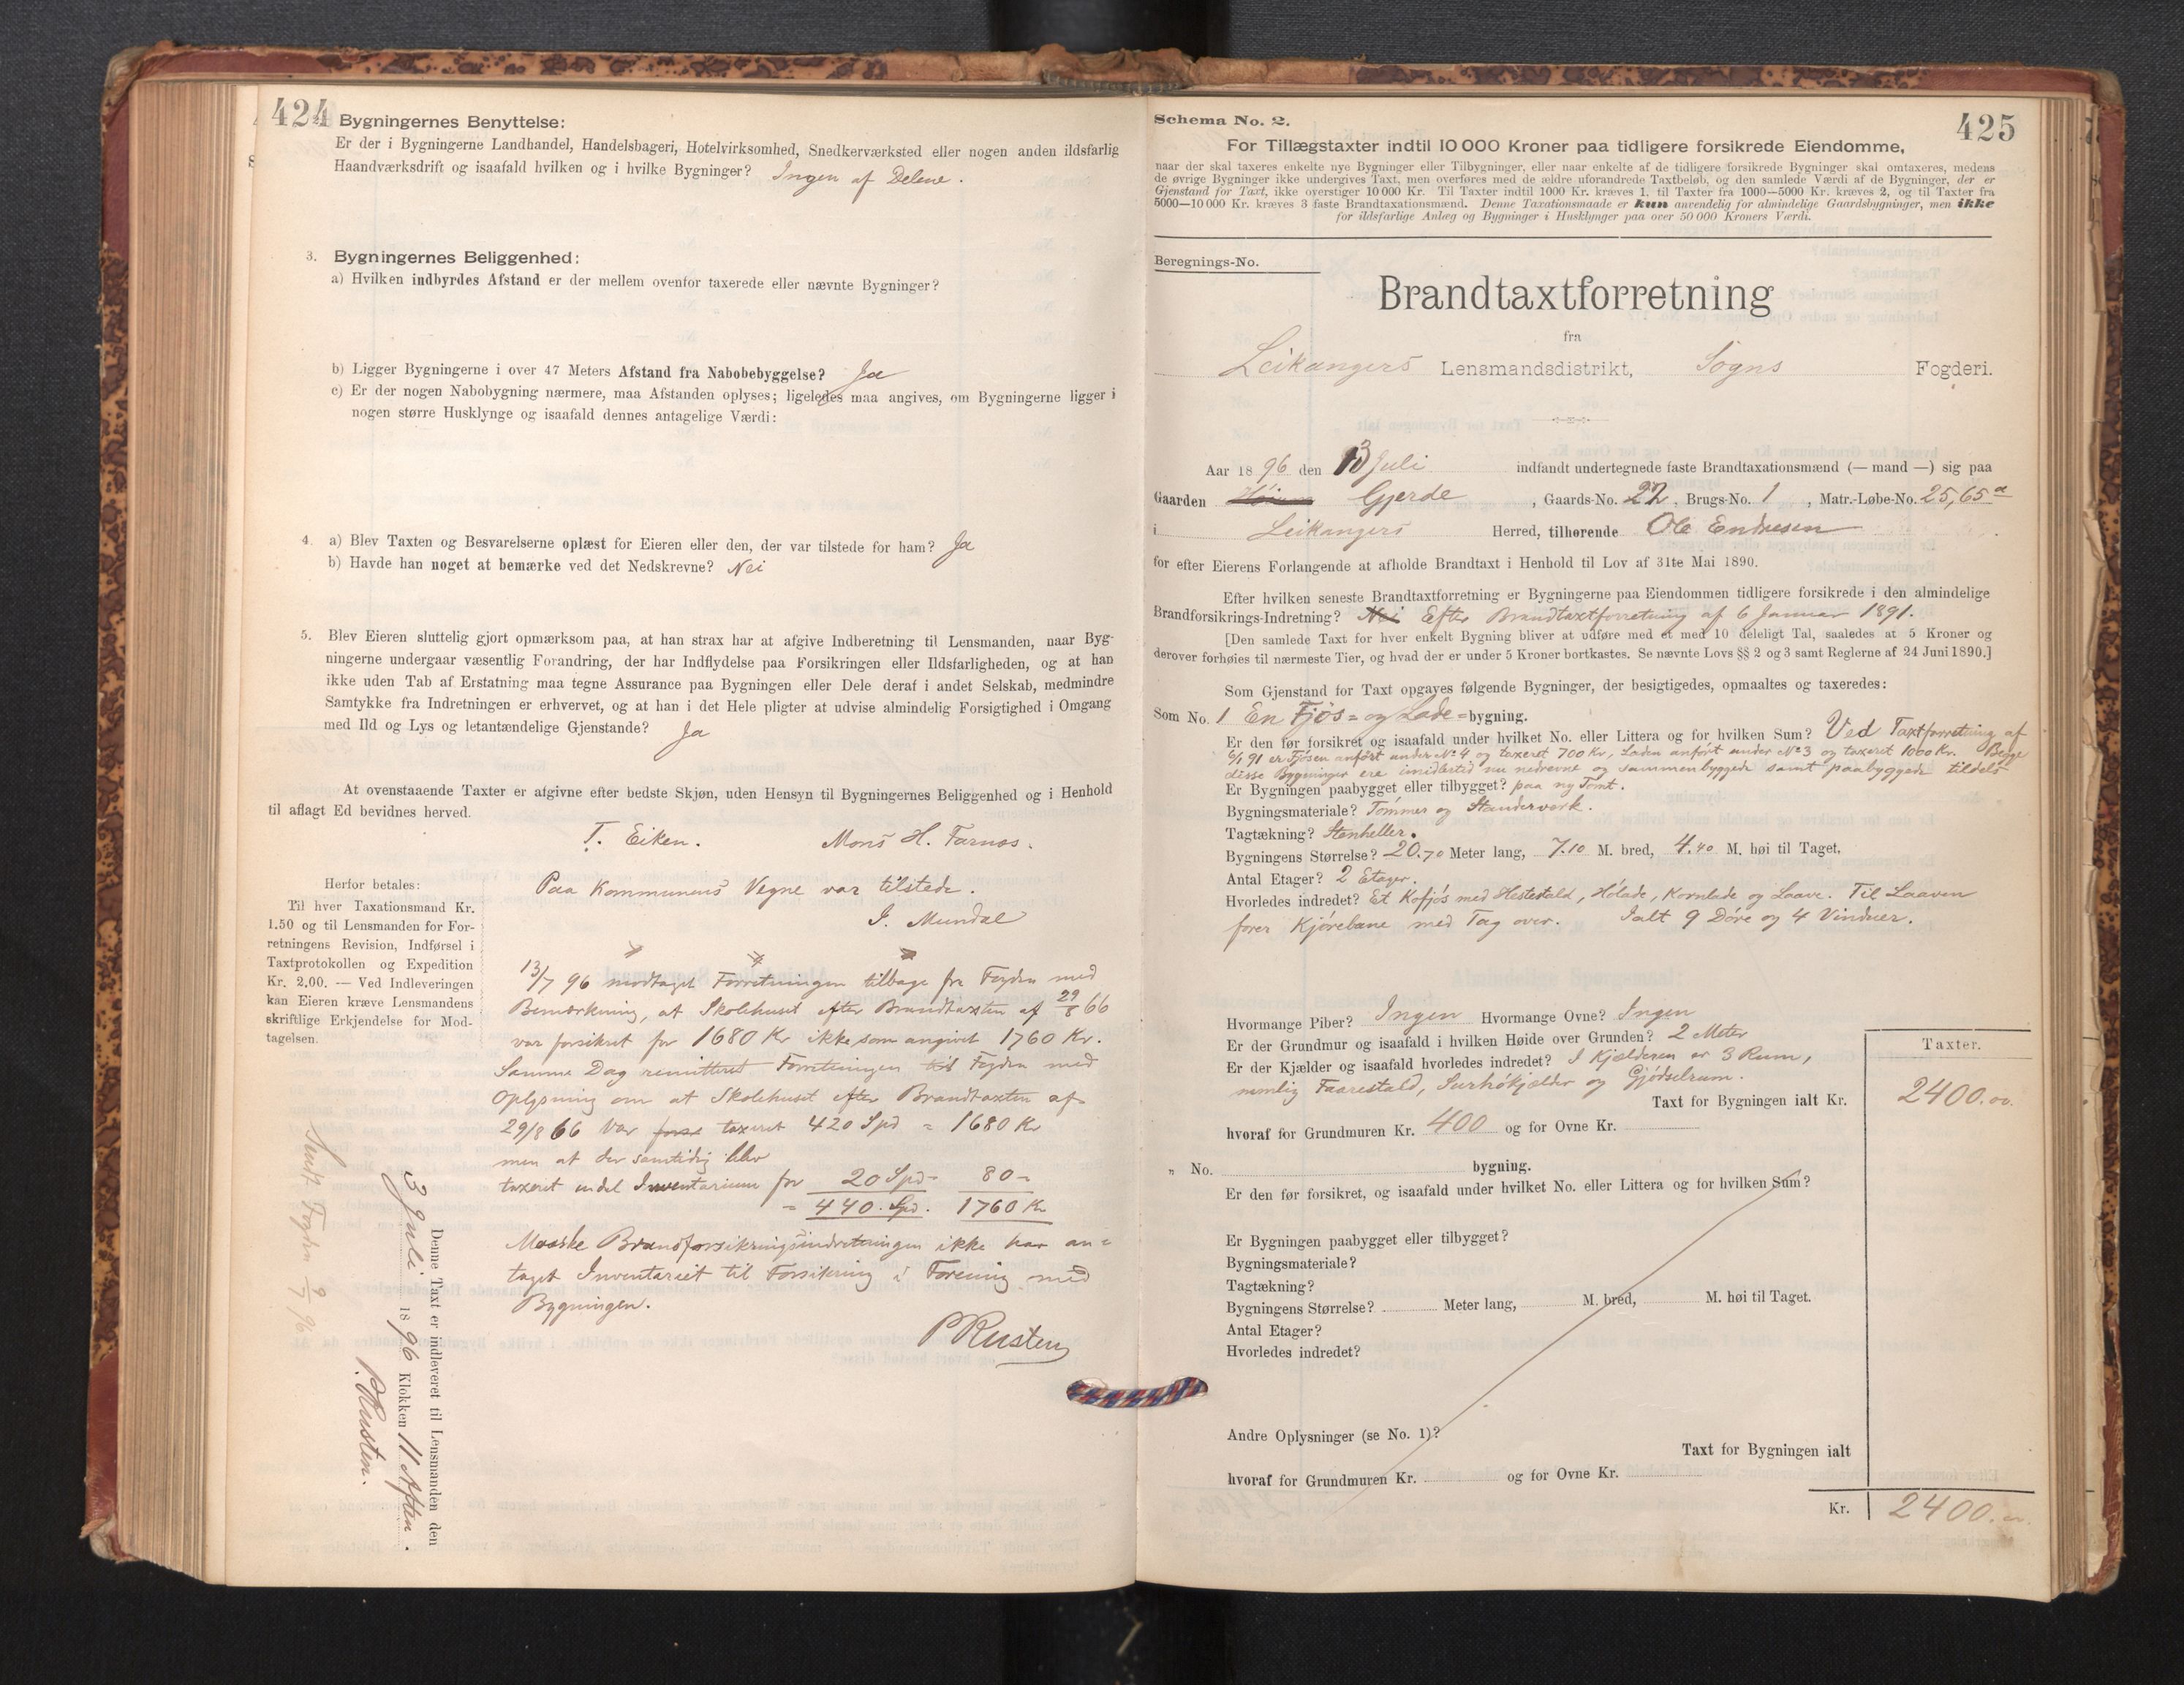 424
Bygningernes Benyttelse:
Er der i Bygningerne Landhandel, Handelsbageri, Hotelvirksomhed, Snedkerværksted eller nogen anden ildsfarlig
Haandværksdrift og isaafald hvilken og i hvilke Bygninger? Ingen af Delene.
3. Bygningernes Beliggenhed:
a) Hvilken indbyrdes Afstand er der mellem ovenfor taxerede eller nævnte Bygninger?
b) Ligger Bygningerne i over 47 Meters Afstand fra Nabobebyggelse? Ja
c) Er der nogen Nabobygning nærmere, maa Afstanden oplyses; ligeledes maa angives, om Bygningerne ligger i
nogen større Husklynge og isaafald dennes antagelige Værdi:
4. a) Blev Taxten og Besvarelserne oplæst for Eieren eller den, der var tilstede for ham? Ja
b) Havde han noget at bemærke ved det Nedskrevne? Nei
5. Blev Eieren sluttelig gjort opmærksom paa, at han strax har at afgive Indberetning til Lensmanden, naar Byg-
ningerne undergaar væsentlig Forandring, der har Indflydelse paa Forsikringen eller Ildsfarligheden, og at han
ikke uden Tab af Erstatning maa tegne Assurance paa Bygningen eller Dele deraf i andet Selskab, medmindre
Samtykke fra Indretningen er erhvervet, og at han i det Hele pligter at udvise almindelig Forsigtighed i Omgang
med Ild og Lys og letantændelige Gjenstande? Ja
At ovenstaaende Taxter er afgivne efter bedste Skjøn, uden Hensyn til Bygningernes Beliggenhed og i Henhold
til aflagt Ed bevidnes herved.
T. Eiken. Mons H. Farnæs.
Paa Kommunens Vegne var tilstede.
J. Mundal
Herfor betales:
Til hver Taxationsmand Kr.
1.50 og til Lensmanden for For-
retningens Revision, Indførsel i
Taxtprotokollen og Expedition
Kr. 2,00. — Ved Indleveringen
kan Eieren kræve Lensmandens
skriftlige Erkjendelse for Mod-
tagelsen.
13/7 96 modtaget Forretningen tilbage fra Fogden med
Bemærkning, at Skolehuset efter Brandtaxten af 29/8 66
var forsikret for 1680 Kr ikke som angivet 1760 Kr.
Samme Dag remitteret Forretningen til Fogden med
Oplysning om at Skolehuset efter Brandtaxten af
29/8 66 var taxeret 420 Spd = 1680 Kr
men at der samtidig blev
taxeret endel Inventarium for 20 Spd = 80 -
= 440 Spd. 1760 Kr
Maaske Brandforsikringsindretningen ikke har an=
taget Inventariet til Forsikring i Forening med
Bygningen.
P Rusten
Denne Taxt er indleveret til Lensmanden den
3 Juli 1896 Klokken 11 Aften.
P. Rusten.
Sendt Fogden 9/7 96
425
Schema No. 2.
For Tillægstaxter indtil 10 000 Kroner paa tidligere forsikrede Eiendomme,
naar der skal taxeres enkelte nye Bygninger eller Tilbygninger, eller naar enkelte af de tidligere forsikrede Bygninger skal omtaxeres, medens
de øvrige Bygninger ikke undergives Taxt, men overføres med de ældre uforandrede Taxtbeløb, og den samlede Værdi af de Bygninger, der er
Gjenstand for Taxt, ikke overstiger 10 000 Kr. Til Taxter indtil 1000 Kr. kræves 1, til Taxter fra 1000—5000 Kr. kræves 2, og til Taxter fra
5000—10 000 Kr. kræves 3 faste Brandtaxationsmænd. Denne Taxationsmaade er kun anvendelig for almindelige Gaardsbygninger, men ikke
for ildsfarlige Anlæg og Bygninger i Husklynger paa over 50 000 Kroners Værdi.
Beregnings-No.
Brandtaxtforretning
fra
Leikangers Lensmandsdistrikt, Sogns Fogderi.
Aar 1896 den 13 Juli indfandt undertegnede faste Brandtaxationsmænd (— mand —) sig paa
Gaarden Gjerde, Gaards-No. 22, Brugs-No. 1, Matr.-Løbe-No. 25,65a
i Leikangers Herred, tilhørende Ole Endresen
for efter Eierens Forlangende at afholde Brandtaxt i Henhold til Lov af 31te Mai 1890.
Efter hvilken seneste Brandtaxtforretning er Bygningerne paa Eiendommen tidligere forsikrede i den almindelige
Brandforsikrings-Indretning? Nei Efter Brandtaxtforretning af 6 Januar 1891.
[Den samlede Taxt for hver enkelt Bygning bliver at udføre med et med 10 deleligt Tal, saaledes at 5 Kroner og
derover forhøies til nærmeste Tier, og hvad der er under 5 Kroner bortkastes. Se nævnte Lovs §§ 2 og 3 samt Reglerne af 24 Juni 1890.]
Som Gjenstand for Taxt opgaves følgende Bygninger, der besigtigedes, opmaaltes og taxeredes:
Som No. 1 En Fjøs= og Lade=bygning.
Er den før forsikret og isaafald under hvilket No. eller Littera og for hvilken Sum? Ved Taxtforretning af
6/1 91 er Fjøsen anført under No 4 og taxeret 700 Kr, Laden anført under No 3 og taxeret 1000 Kr. Begge
disse Bygninger ere imidlertid nu nedrevne og sammenbyggede samt paabyggede tildels
Er Bygningen paabygget eller tilbygget? paa ny Tomt.
Bygningsmateriale? Tømmer og Standerverk.
Tagtækning? Stenheller.
Bygningens Størrelse? 20.70 Meter lang, 7.10 M. bred, 4.40 M. høi til Taget.
Antal Etager? 2 Etager.
Hvorledes indredet? Et Kofjøs med Hestestald, Hølade, Kornlade og Laave. Til Laaven
fører Kjørebane med Tag over. Ialt 9 Døre og 4 Vinduer.
Hvormange Piber? Ingen Hvormange Ovne? Ingen
Er der Grundmur og isaafald i hvilken Høide over Grunden? 2 Meter
Er der Kjælder og isaafald hvorledes indredet? I Kjælderen er 3 Rum,
nemlig Faarestald, Surhøkjælder og Gjødselrum.
Taxter.
Taxt for Bygningen ialt Kr. 2400.00.
hvoraf for Grundmuren Kr. 400 og for Ovne Kr.
„ No. bygning.
Er den før forsikret, og isaafald under hvilket No. eller Littera og for hvilken Sum?
Er Bygningen paabygget eller tilbygget?
Bygningsmateriale?
Tagtækning?
Bygningens Størrelse? Meter lang, M. bred, M. høi til Taget.
Antal Etager?
Hvorledes indredet?
Andre Oplysninger (se No. 1)?
Taxt for Bygningen ialt
hvoraf for Grundmuren Kr. og for Ovne Kr.
Kr. 2400.00.